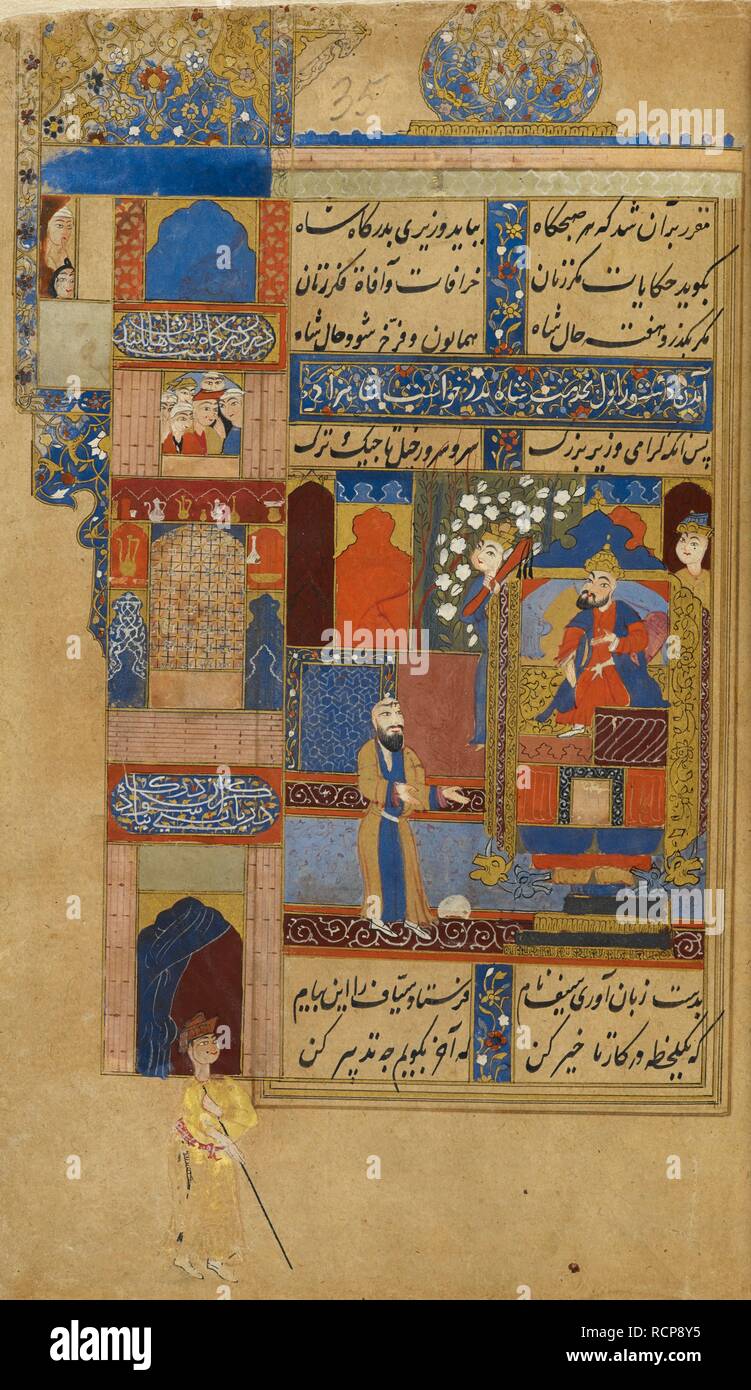 35
مقرر بران شد که هر صبحکاه بیاید وزیری بدرکاه شاه
بکوید حکایات مکر زنان خرافات وآفاة فکر زنان
مکر بکذرد حال شاه همایون و فرخ شود حال شاه
آمدن دستور اول بخدمت شاه بدرخواست
پس انکه کرامی وزیر بزرک سر و سرور خیل تاجیک و ترک
بدست زبان آوری نام فرستاد سیاف را این پیام
که یکلحظه در کار تاخیر کن که آخر بکویم چه تدبیر کن
alamy
Image ID: RCP8Y5
www.alamy.com